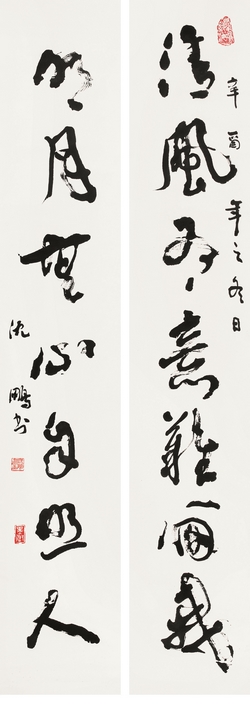 清風有意難留我
辛酉年之冬日
明月無心自照人
沈鵬书